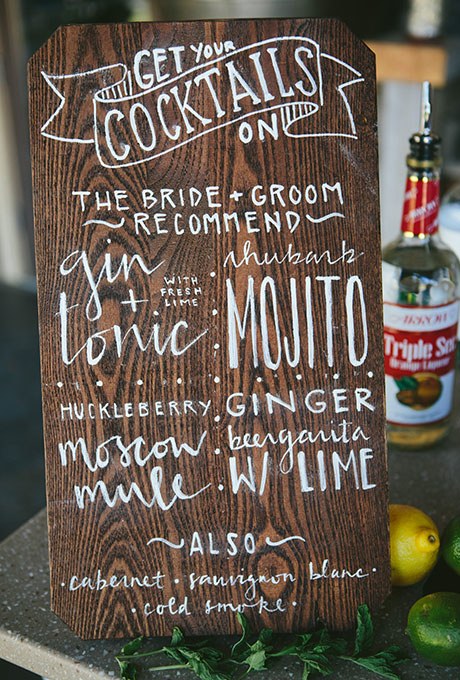 GET YOUR
COCKTAILS
ON
THE BRIDE + GROOM
RECOMMEND
gin
+
tonic
WITH
FRESH
LIME
rhubarb
MOJITO
HUCKLEBERRY
moscow
mule
GINGER
beergarita
W/ LIME
ALSO
· cabernet · sauvignon blanc ·
· cold smoke ·
Triple Sec
Orange Liqueur